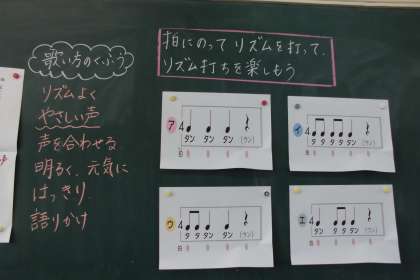 歌い方のくふう
リズムよく
やさしい声
声を合わせる
明るく、元気に
はっきり
語りかけ
拍にのって リズムを打って、
リズム打ちを楽しもう
ア
4
タン タン タン (ウン)
拍
イ
4
タタ タタ タン (ウン)
拍
ウ
4
タタ タン タン (ウン)
拍
エ
4
タン タタ タン (ウン)
拍